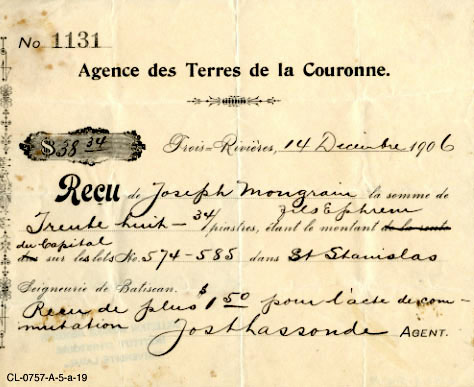 No 1131
Agence des Terres de la Couronne.
$38 34
Trois=Rivières, 14 Decembre 1906
Reçu de Joseph Mongrain la somme de
fils Ephrem
Trente huit — 34/ piastres, étant le montant de la rente
du Capital
sur les lots No. 574-585 dans St Stanislas
Seigneurie de Batiscan.
Recu de plus $1 50 pour l'acte de com-
mutation Jos Lassonde AGENT.
CL-0757-A-5-a-19